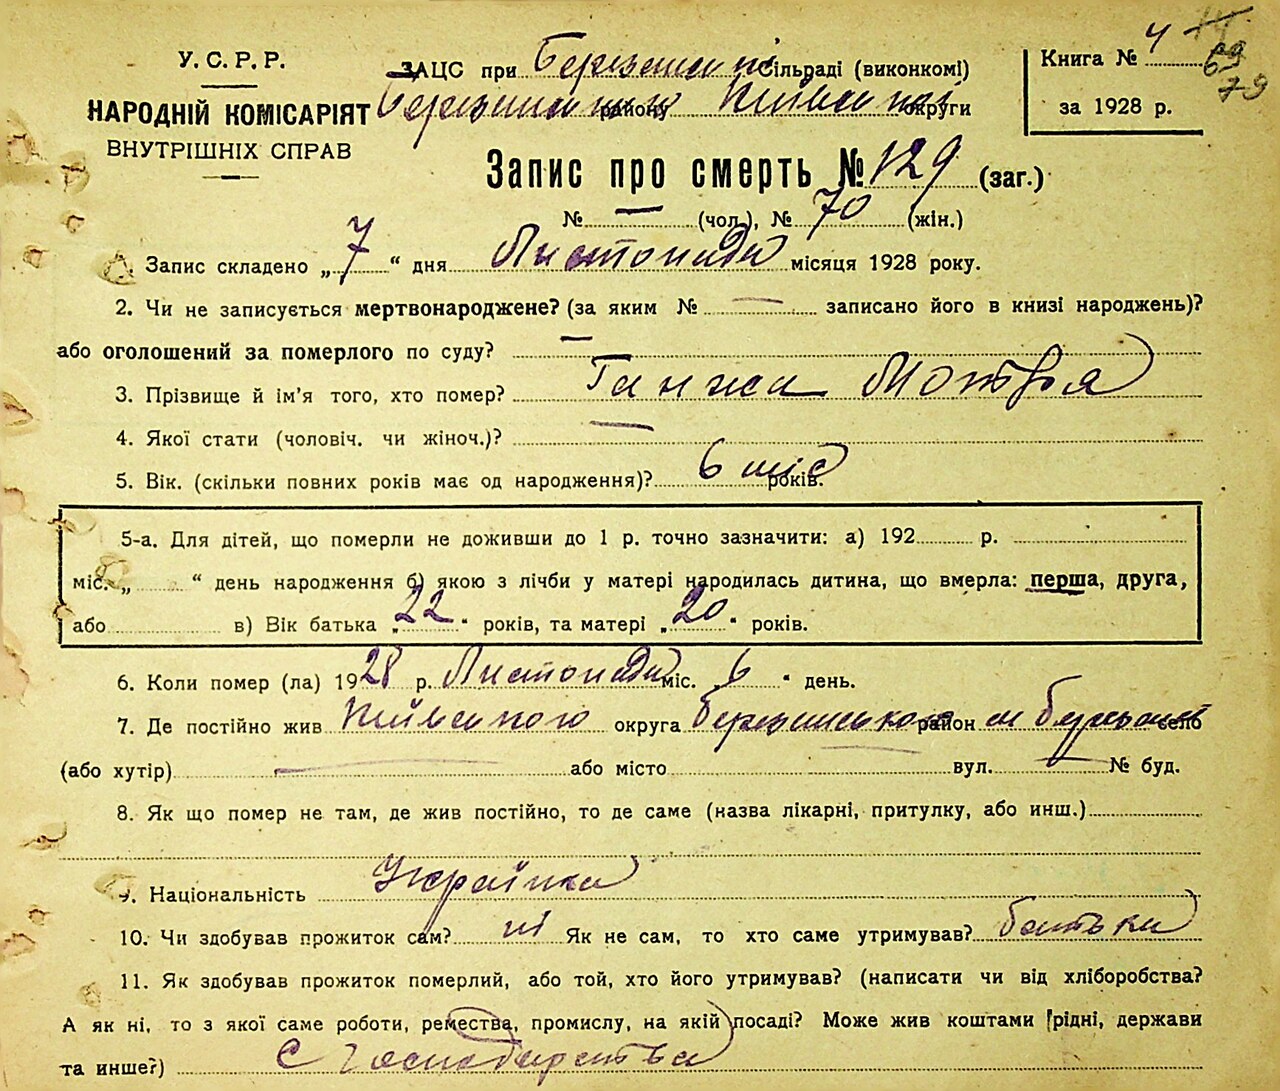 У.С.Р.Р.
НАРОДНІЙ КОМІСАРІЯТ
ВНУТРІШНІХ СПРАВ
ЗАЦС при Березанські Сільраді (виконкомі)
Березанського району Київської округи
Книга № 4
69
79
за 1928 р.
Запис про смерть № 129 (заг.)
№ — (чол.), № 70 (жін.)
1. Запис складено „7“ дня Листопада місяця 1928 року.
2. Чи не записується мертвонароджене? (за яким № — записано його в книзі народжень)?
або оголошений за померлого по суду? —
3. Прізвище й ім'я того, хто помер? Ганжа Мотря
4. Якої статі (чоловіч. чи жіноч.)? —
5. Вік. (скільки повних років має од народження)? 6 міс років.
5-а. Для дітей, що померли не доживши до 1 р. точно зазначити: а) 192 р.
міс. „ “ день народження б) якою з лічби у матері народилась дитина, що вмерла: перша, друга,
або в) Вік батька „22“ років, та матері „20“ років.
6. Коли помер (ла) 1928 р. Листопада міс. „6“ день.
7. Де постійно жив Київського округа Березанського район м Березань село
(або хутір) — або місто вул. — № буд.
8. Як що помер не там, де жив постійно, то де саме (назва лікарні, притулку, або инш.)
9. Національність Українка
10. Чи здобував прожиток сам? ні Як не сам, то хто саме утримував? батьки
11. Як здобував прожиток померлий, або той, хто його утримував? (написати чи від хліборобства?
А як ні, то з якої саме роботи, ремества, промислу, на якій посаді? Може жив коштами рідні, держави
та инше?) С Господарства